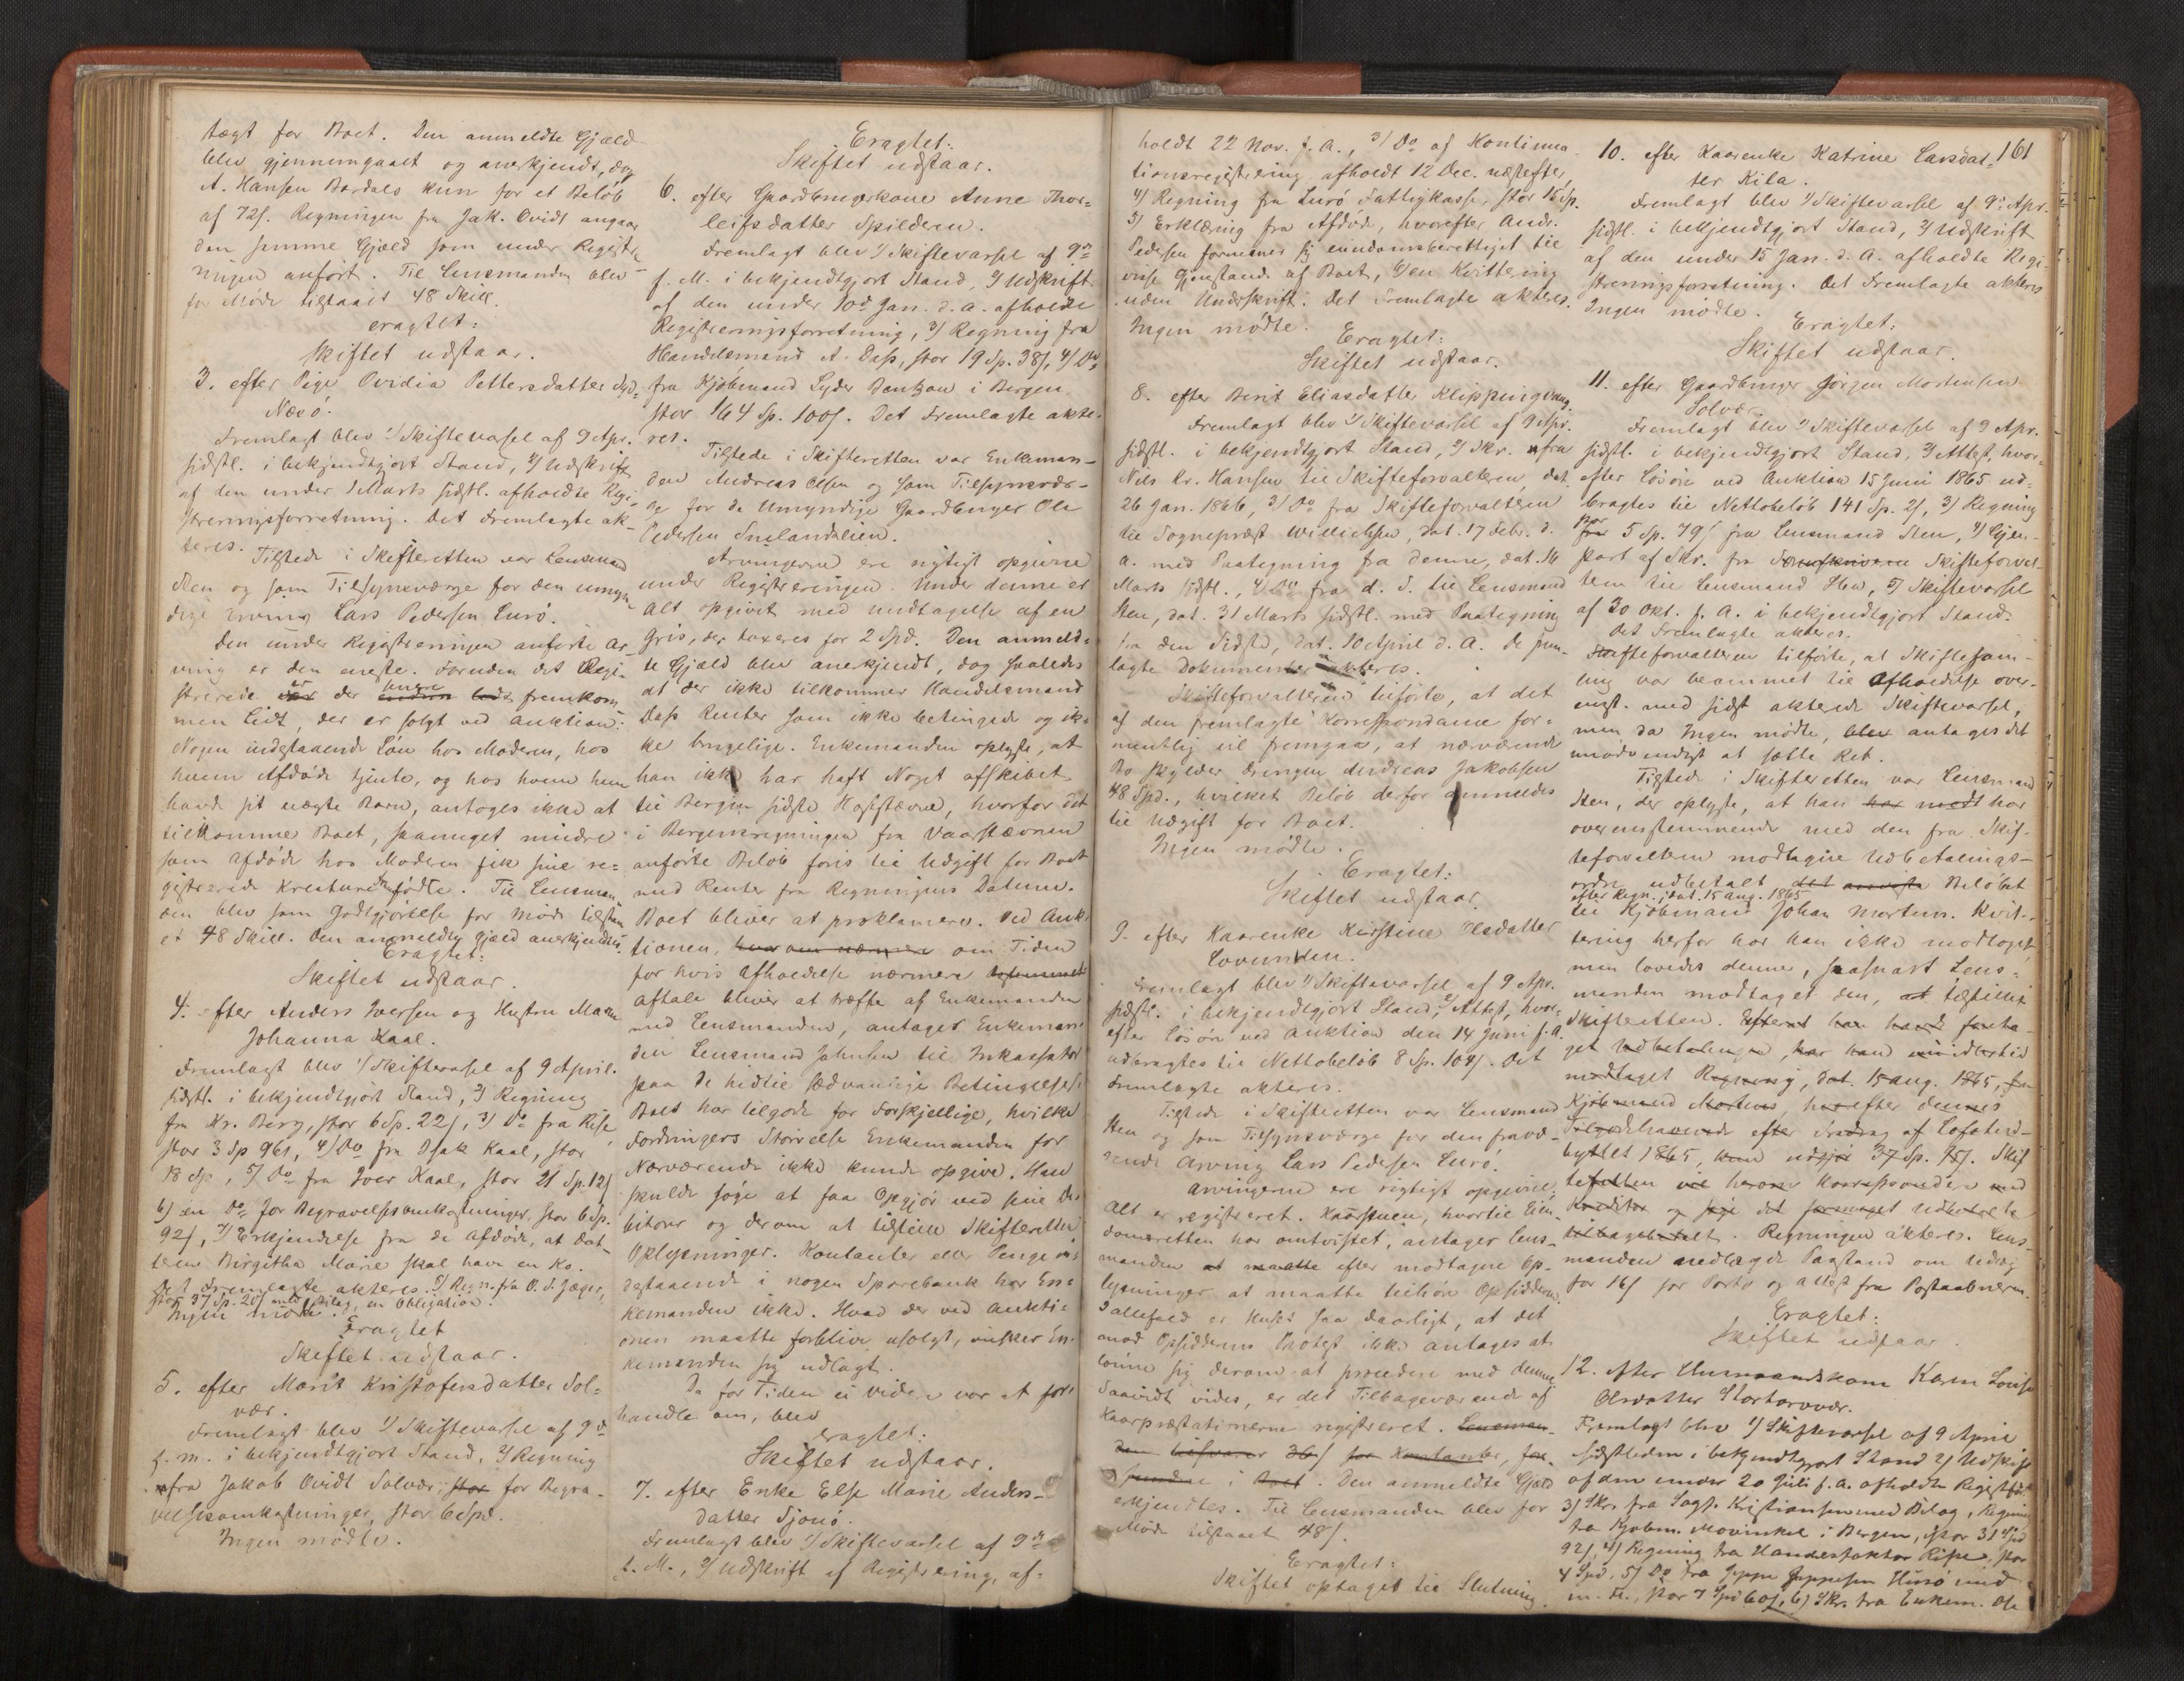 tægt for Boet. Den anmeldte Gjæld
blev gjennemgaaet og anerkjendt, dog
A. Hansen Bardals kun for et Beløb
af 72ſ. Regningen fra Jak. Ovidt angaar
den samme Gjæld som under Registe-
ringen anført. Til Lensmanden blev
for Møde tilstaaet 48 Skill.
eragtet:
Skiftet udstaar.
3. efter Pige Ovidia Pettersdatter Syd-
Næsø.
Fremlagt blev 1/ Skiftevarsel af 9 Apr.
sidstl. i bekjendtgjort Stand, 2/ Udskrift
af den under 1 Marts sidstl. afholdte Regi-
streringsforretning. Det Fremlagte ak-
teres.
Tilstede i Skifteretten var Lensmand
Sten og som Tilsynsværge for den umyn-
dige Arving Lars Pedersen Lurø.
Den under Registreringen anførte Ar-
ving er den eneste. Foruden det Regi-
strerede er der fremkom-
men Lidt, der er solgt ved Auktion.
Nogen indestaaende Løn hos Moderen, hos
hvem Afdøde tjente, og hos hvem hun
havde sit uægte Barn, antoges ikke at
tilkomme Boet, saameget mindre
som Afdøde hos Moderen fik sine re-
gistrerede Kreature fødte. Til Lensman-
den blev som Godtgjørelse for Møde tilstaa-
et 48 Skill. Den anmeldte Gjæld anerkjendtes.
Eragtet:
Skiftet udstaar.
4. efter Anders Iversen og Hustru Maren
Johanna Kaal.
Fremlagt blev 1/ Skiftevarsel af 9 April
sidstl. i bekjendtgjort Stand, 2/ Regning
fra Kr. Berg, stor 6 Sp. 22ſ, 3/ Do fra Rise,
stor 3 Sp 96ſ, 4/ Do fra Isak Kaal, stor
18 Sp, 5/ Do fra Iver Kaal, stor 21 Sp. 12ſ
6/ en Do for Begravelsesomkostninger, stor 6 Sp.
92ſ, 7/ Erkjendelse fra de Afdøde, at Dat-
teren Birgitha Marie skal have en Ko.
Det Fremlagte akteres. 8/ Regn. fra O. F. Jæger,
stor 37 Sp. 20ſ med Bilag, en Obligation.
Ingen mødte.
Eragtet
Skiftet udstaar.
5. efter Marit Kristofersdatter Sol-
vær.
Fremlagt blev 1/ Skiftevarsel af 9de
f. M. i bekjendtgjort Stand, 2/ Regning
fra Jakob Ovidt Solvær, stor for Begra-
velsesomkostninger, stor 6 Spd.
Ingen mødte.
Eragtet:
Skiftet udstaar.
6. efter Gaardbrugerkone Anne Thor-
leifsdatter Spilderen.
Fremlagt blev 1/ Skiftevarsel af 9de
f. M. i bekjendtgjort Stand, 2/ Udskrift
af den under 10de Jan. d. A. afholdte
Registreringsforretning, 3/ Regning fra
Handelsmand A. Dass, stor 19 Sp. 38ſ, 4/ Do
fra Kjøbmand Lyder Bentzon i Bergen
stor 164 Sp. 100ſ. Det Fremlagte akte-
res.
Tilstede i Skifteretten var Enkeman-
den Andreas Olsen og som Tilsynsvær-
ge for de Umyndige Gaardbruger Ole
Pedersen Smelandslien.
Arvingerne ere rigtigt opgivne
under Registreringen. Under denne er
Alt opgivet med Undtagelse af en
Gris, der taxeres for 2 Spd. Den anmeld-
te Gjæld blev anerkjendt, dog saaledes
at der ikke tilkommer Handelsmand
Dass Renter som ikke betingede og ik-
ke brugelige. Enkemanden oplyste, at
han ikke har haft Noget afskibet
til Bergen sidste Høststævne, hvorfor det
i Bergensregningen fra Vaarstævnen
anførte Beløb føres til Udgift for Boet
med Renter fra Regningens Datum.
Boet bliver at proklamere. Ved Auk-
tionen, hvorom nærmere om Tiden
for hvis Afholdelse nærmere
aftale bliver at træffe af Enkemanden
med Lensmanden, antages Enkeman-
den Lensmand Johnsen til Inkassator
paa de hidtil sædvanlige Betingelser.
Boet har tilgode for Forskjellige, hvilke
Fordringers Størrelse Enkemanden for
Nærværende ikke kunde opgive. Han
skulde søge at faa Opgjør ved sine De-
bitorer og derom at tilstille Skifteretten
Oplysninger. Kontanter eller Penge in-
destaaende i nogen Sparebank har En-
kemanden ikke. Hvad der ved Aukti-
onen maatte forblive usolgt, ønsker En-
kemanden sig udlagt.
Da for Tiden ei videre var at for-
handle om, blev
eragtet:
Skiftet udstaar.
7. efter Enke Else Marie Anders-
datter Sjonø.
Fremlagt blev 1/ Skiftevarsel af 9de
f. M., 2/ Udskrift af Registrering, af-
holdt 22 Nov. f. A., 3/ Do af Kontinua-
tionsregistrering afholdt 12 Dec. næstefter,
4/ Regning fra Lurø Fattigkasse, stor 15 Sp.
5/ Erklæring fra Afdøde, hvorefter Andr.
Pedersen formener sig eiendomsberettiget til
visse Gjenstande af Boet, 6/ en Kvittering
uden Underskrift. Det Fremlagte akteres.
Ingen mødte.
Eragtet:
Skiftet udstaar.
8. efter Berit Eliasdatter Klippingvaag.
Fremlagt blev 1/ Skiftevarsel af 9 Apr.
sidstl. i bekjendtgjort Stand, 2/ Skr. fra
Nils Kr. Hansen til Skifteforvalteren, dat.
26 Jan. 1866, 3/ Do fra Skifteforvalteren
til Sogneprest Willichsen, dat. 17 Febr. d.
A. med Paategning fra denne, dat. 14
Marts sidstl., 4/ Do fra d. S. til Lensmand
Sten, dat. 31 Marts sidstl. med Paategning
fra den Sidste, dat. 10 April d. A. De frem-
lagte Dokumenter akteres.
Skifteforvalteren tilførte, at det
af den fremlagte Korrespondance for-
mentlig vil fremgaa, at nærværende
Bo skylder Drengen Andreas Jakobsen
48 Spd., hvilket Beløb derfor anmeldes
til Udgift for Boet.
Ingen mødte.
Eragtet:
Skiftet udstaar.
9. efter Kaarenke Kirstine Olsdatter
Lovunden.
Fremlagt blev 1/ Skiftevarsel af 9 Apr.
sidstl. i bekjendtgjort Stand, 2/ Attest, hvor-
efter Løsøre ved Auktion den 14 Juni f. A.
udbragtes til Nettobeløb 8 Sp. 104ſ. Det
Fremlagte akteres.
Tilstede i Skifteretten var Lensmand
Sten og som Tilsynsværge for den fravæ-
rende Arving Lars Pedersen Lurø.
Arvingerne ere rigtigt opgivne,
Alt er registreret. Kaarstuen, hvortil Eien-
domsretten har omtvistet, antager Lens-
manden at maatte efter modtagne Op-
lysninger at maatte tilhøre Opsidderen.
Iallefald er Huset saa daarligt, at det
mod Opsidderens Protest ikke antages at
lønne sig derom at procedere med denne.
Saavidt vides, er det Tilbageværende af
Kaarpræstationerne registreret. Lensman-
den besvarer 36ſ for Kontanter, fore-
i Boet. Den anmeldte Gjæld
erkjendtes. Til Lensmanden blev for
Møde tilstaaet 48ſ.
Eragtet:
Skiftet optaget til Slutning.
161
10. efter Kaarenke Katrine Larsdat-
ter Kila.
Fremlagt blev 1/ Skiftevarsel af 9de Apr.
sidstl. i bekjendtgjort Stand, 2/ Udskrift
af den under 15 Jan. d. A. afholdte Regi-
streringsforretning. Det Fremlagte akteres
Ingen mødte.
Eragtet:
Skiftet udstaar.
11. efter Gaardbruger Jørgen Mortensen
Solvær.
Fremlagt blev 1/ Skiftevarsel af 9 Apr.
sidstl. i bekjendtgjort Stand, 2/ Attest, hvor-
efter Løsøre ved Auktion 15 Juni 1865 ud-
bragtes til Nettobeløb 141 Sp. 2ſ, 3/ Regning
stor 5 Sp. 79ſ fra Lensmand Sten, 4/ Gjen-
part af Skr. fra Sorenskriveren Skifteforval-
teren til Lensmand Sten, 5/ Skiftevarsel
af 30 Okt. f. A. i bekjendtgjort Stand.
Det Fremlagte akteres.
Skifteforvalteren tilførte, at Skiftesam-
ling var berammet til Afholdelse over-
enst. med sidst akterede Skiftevarsel,
men da Ingen mødte, blev antages det
unødvendigt at sætte Ret.
Tilstede i Skifteretten var Lensmand
Sten, der oplyste, at han har modt har
overensstemmende med den fra Skif-
teforvalteren modtagne Udbetalings-
ordre udbetalt det Beløbet
efter Regn., dat. 15 Aug. 1865
til Kjøbmand Johan Mortens. Kvit-
tering herfor har han ikke modtaget
men lovedes denne, saasnart Lens-
manden modtaget den, at tilstilles
Skifteretten. Efterat han havde foreta-
get Udbetalingen, har han imidlertid
modtaget Regning, dat. 15 Aug. 1865, fra
Kjøbmand Mortens, hvorefter dennes
Tilgodehavende efter Fradrag af Lofotud-
byttet 1865, kun udgjør 37 Sp. 15ſ. Skif
teretten vil herom korrespondere med
Kreditor og søge det formeget Udbetalte
tilbagebetalt. Regningen akteres. Lens-
manden nedlagde Paastand om Udlæg
for 16ſ for Porto og Attest fra Postaabneren.
Eragtet:
Skiftet udstaar.
12. efter Husmandskone Karen Lovise
Olsdatter Stortorvær.
Fremlagt blev 1/ Skiftevarsel af 9 April
sidstleden i bekjendtgjort Stand 2/ Udskrift
af den under 20 Juli f. A. afholdte Registrf.
3/ Skr. fra Sagf. Kristiansen med Bilag, Regning
fra Kjøbm. Mowinkel i Bergen, stor 31 Spd
92ſ, 4/ Regning fra Handelsfaktor Rise, stor
4 Spd, 5/ Do fra Jeppe Jeppesen Husø med
m. fl., stor 7 Spd 60ſ, 6/ Skr. fra Enkem. Ole